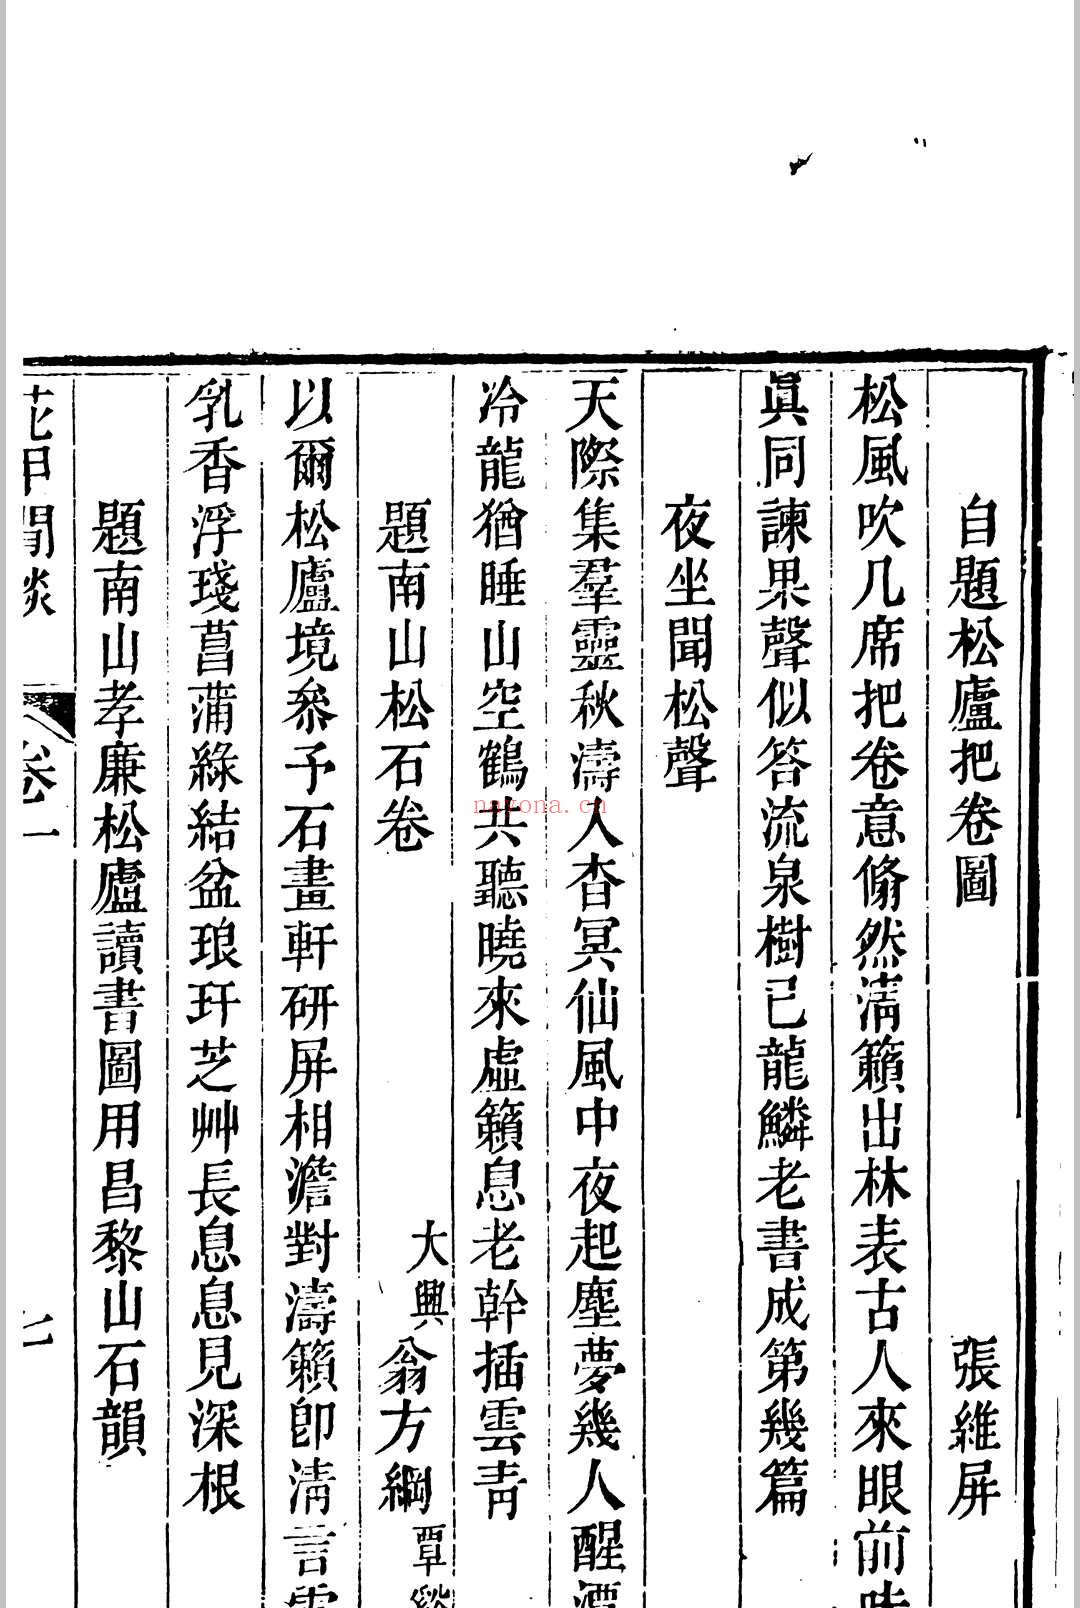 自題松廬把卷圖　張維屏
松風吹几席把卷意翛然淸籟出林表古人來眼前味
眞同諫果聲似答流泉樹已龍鱗老書成第幾篇
夜坐聞松聲
天際集羣靈秋濤人杳冥仙風中夜起塵夢幾人醒
冷龍猶睡山空鶴共聽曉來虛籟息老幹插雲靑
題南山松石卷　大興翁方綱覃谿
以爾松廬境參予石畫軒研屏相澹對濤籟卽淸言
乳香浮琖菖蒲綠結盆琅玕芝艸長息息見深根
題南山孝廉松廬讀書圖用昌黎山石韻
花甲閒談　卷一　七
nayona.cn